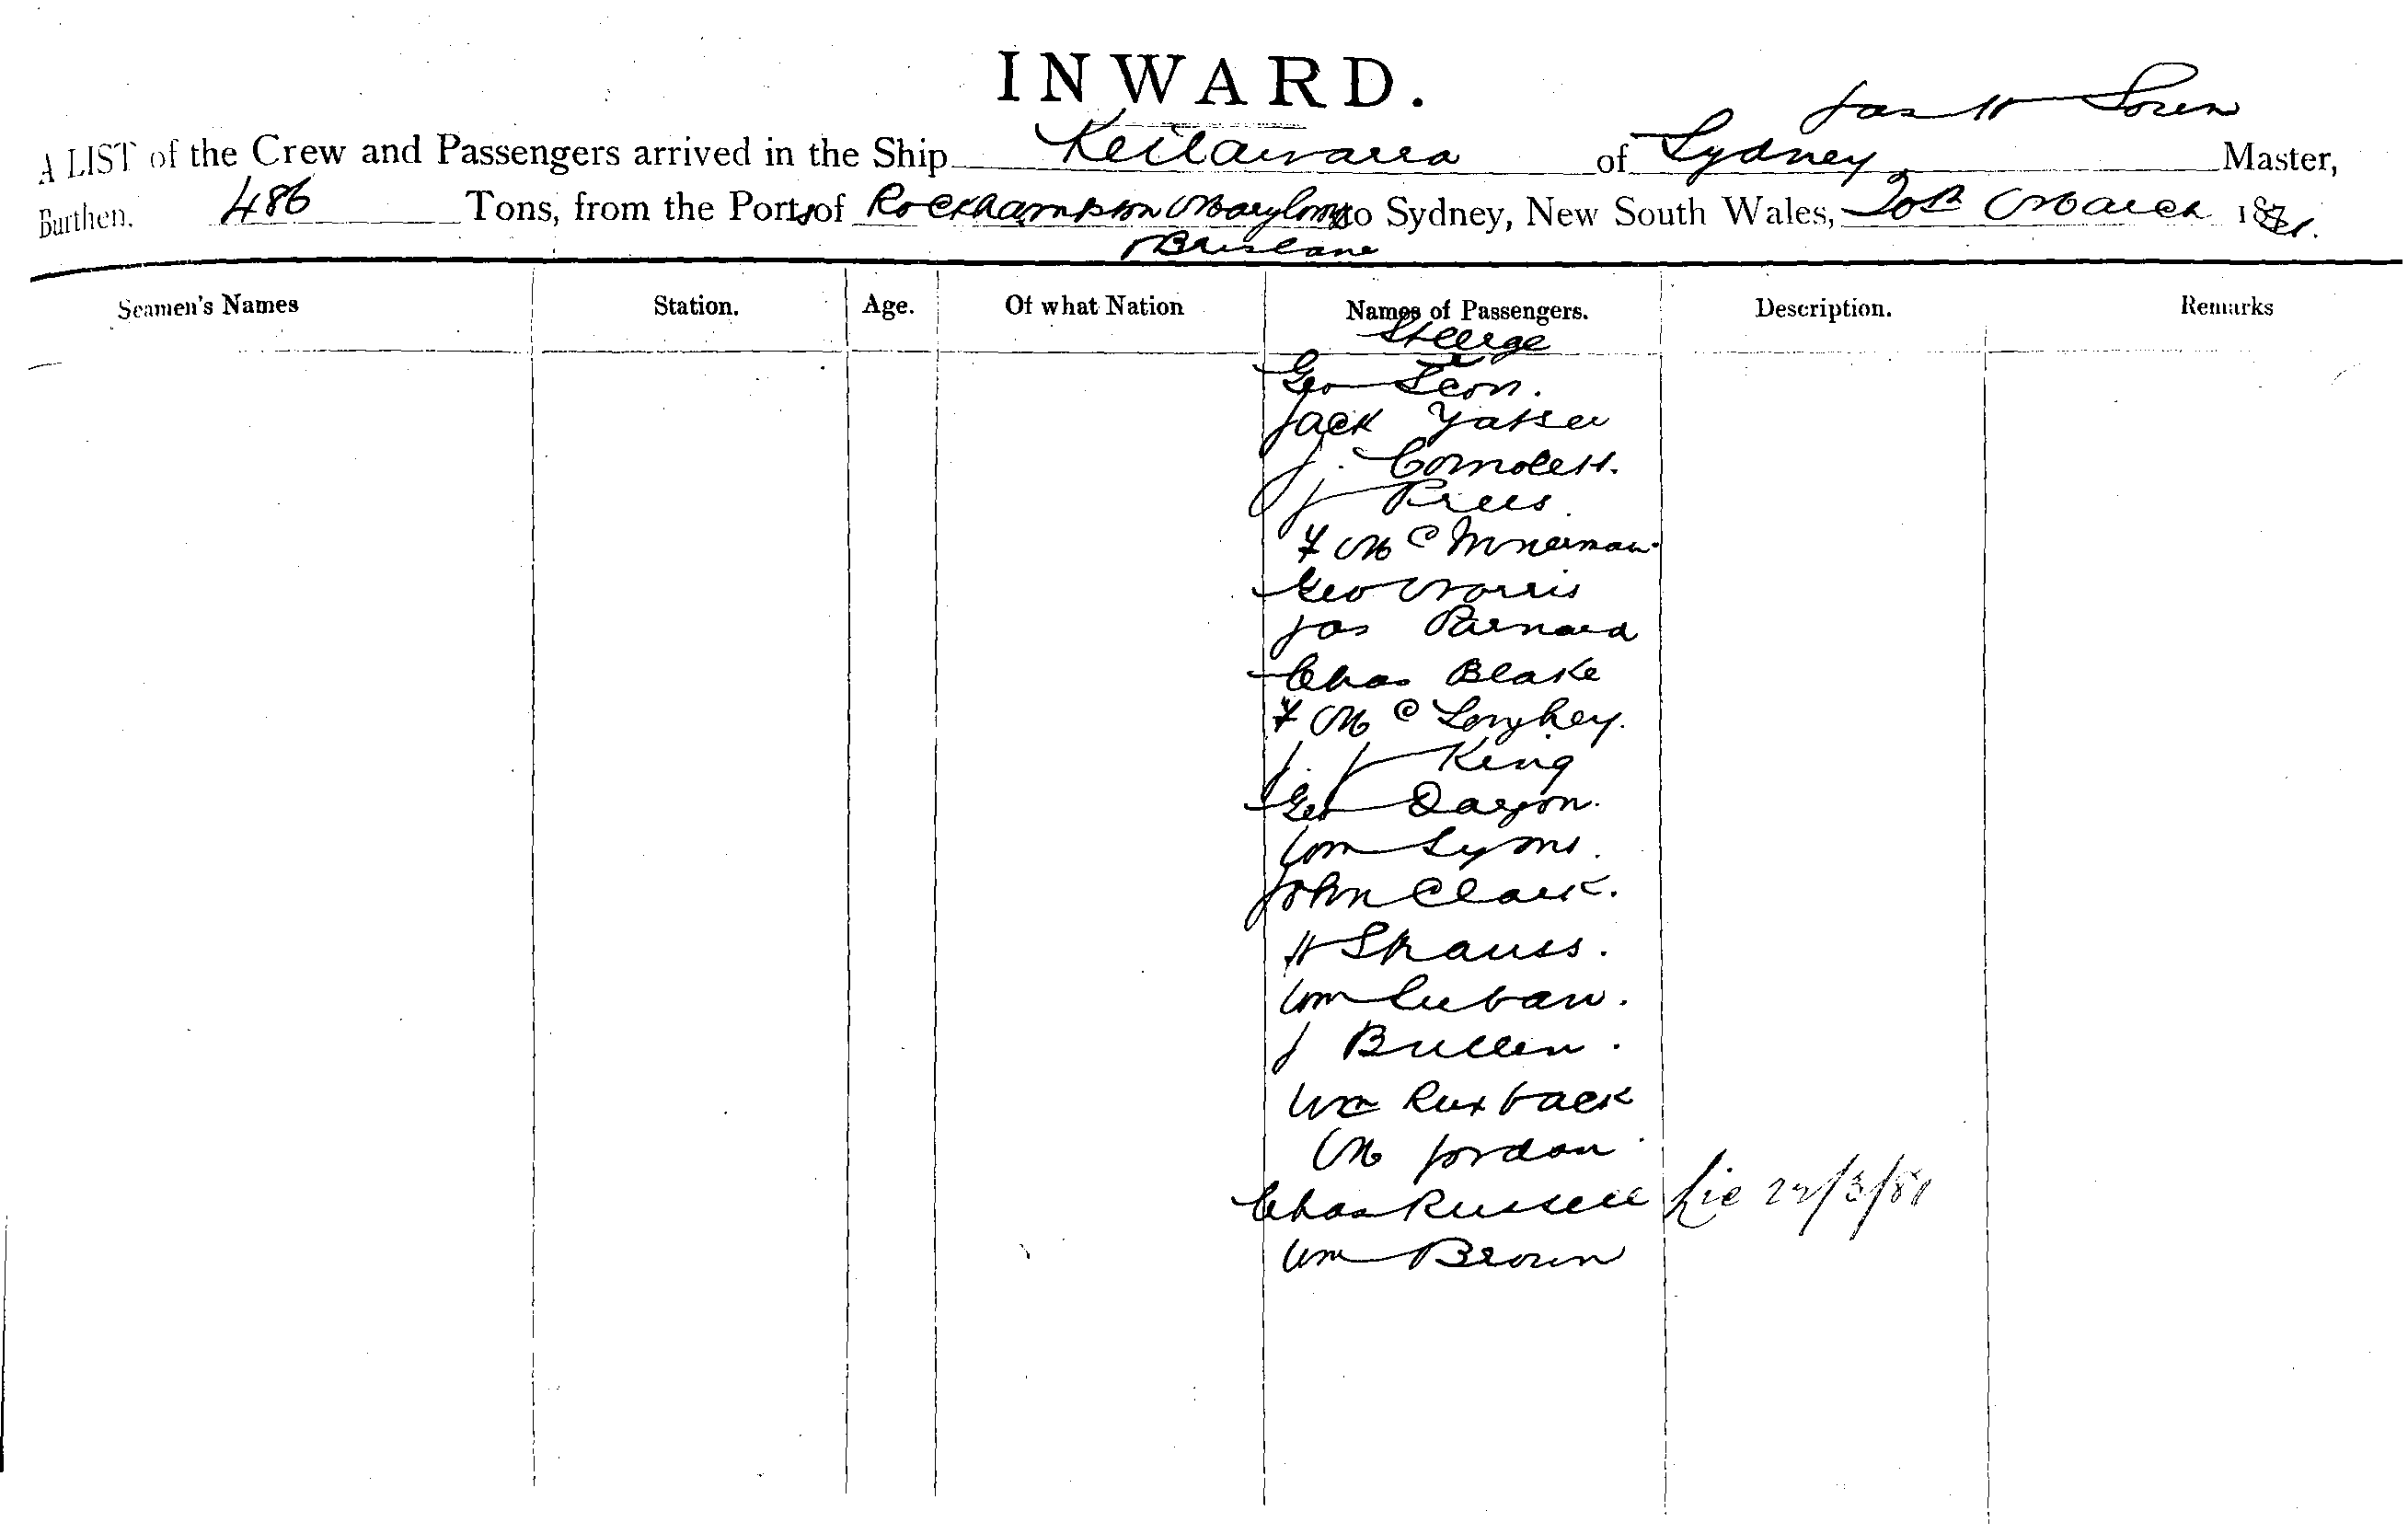 INWARD.
Jas H
A LIST of the Crew and Passengers arrived in the Ship Keilawarra of Sydney Master,
Burthen. 486 Tons, from the Ports of Rockhampton Maryboro to Sydney, New South Wales, 20th March 1881.
& Brisbane
Seamen's Names Station. Age. Of what Nation Names of Passengers. Description. Remarks
Steerge
Geo Leon.
Jack
J.
J Rees
F McInnerman
Geo Norris
Jas Parnard
Chas Blake
F McLonghey.
J. J King
Geo
Wm Lyons.
John Clark.
H Strauss.
Wm
J Bullen.
Wm Ruxback
M Jordan
Chas Russell Lie 22/3/81
Wm Brown